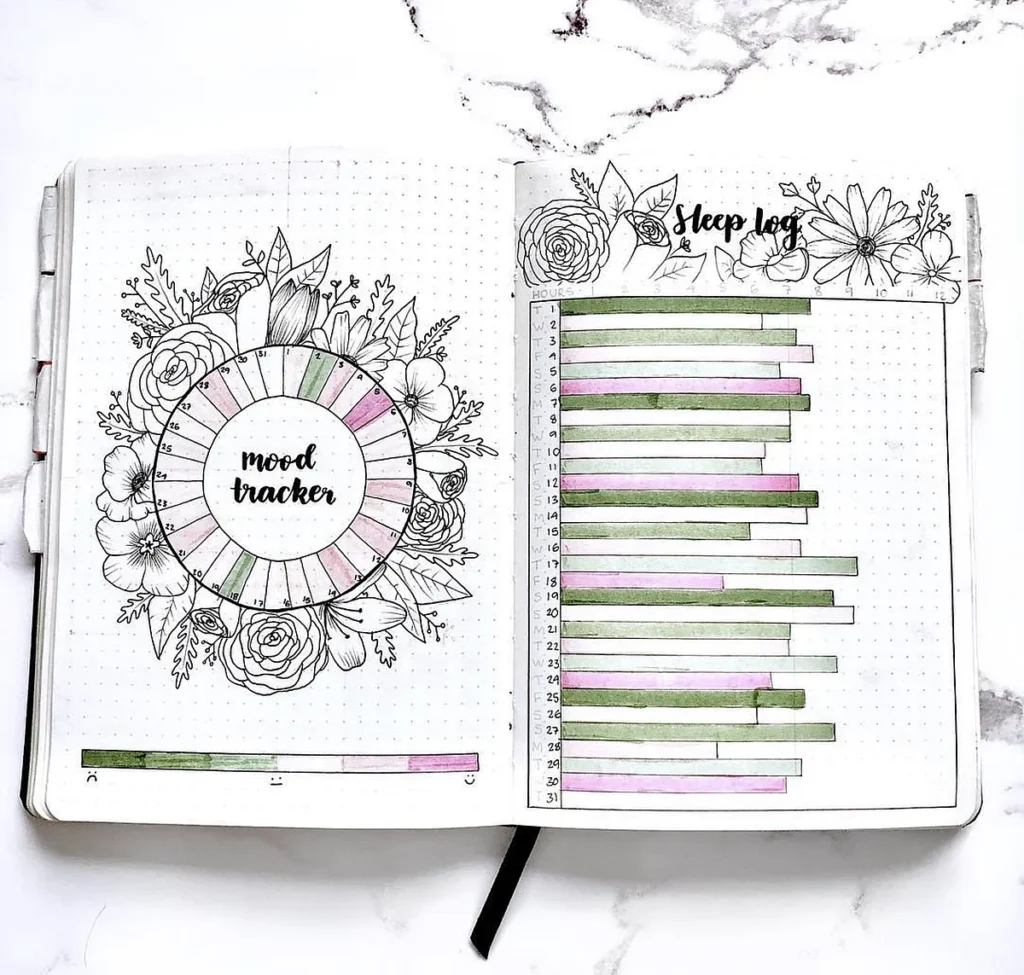 1
2
3
4
5
6
7
8
9
10
11
12
13
14
15
16
17
18
19
20
21
22
23
24
25
26
27
28
29
30
31
mood
tracker
Sleep log
HOURS 1 2 3 5 6 7 9 10 11 12
T 1
W 2
T 3
F 4
S 5
S 6
M 7
T 8
W 9
T 10
F 11
S 12
S 13
M 14
T 15
W 16
T 17
F 18
S 19
S 20
M 21
T 22
W 23
T 24
F 25
S 26
S 27
M 28
T 29
W 30
T 31